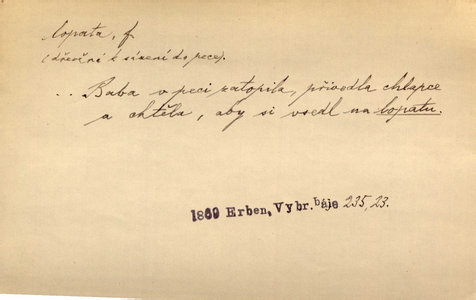 lopata, f.
(dřevěná k sázení do pece).
.. Baba v peci zatopila, přivedla chlapce
a chtěla, aby si vsedl na lopatu.
1869 Erben, Vybr. báje 235, 23.